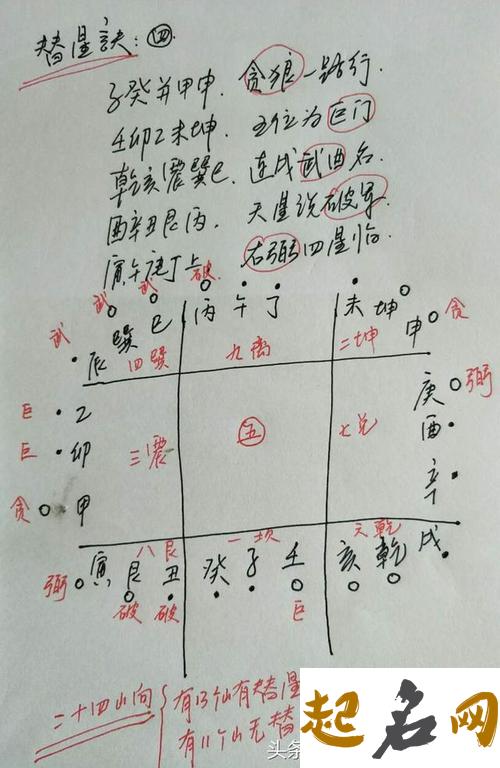 替星诀：㊃
子癸并甲申．贪狼一路行．
壬卯乙未坤．五位为巨门
乾亥辰巽巳．连戌武曲名．
酉辛丑艮丙．天星说破军．
寅午庚丁上 右弼四星临．
武 武 武 破
辰 巽 巳 丙 午 丁 未 坤 申 贪
四巽 九离 二坤
巨 乙 庚 弼
巨 卯 三震 五 七兑 酉
贪 甲 辛
八艮 一坎 六乾
弼 寅 艮 丑 癸 子 壬 亥 乾 戌
破 破 巨
二十四山向 有13个山有替星
有11个山无替
头条
起名网